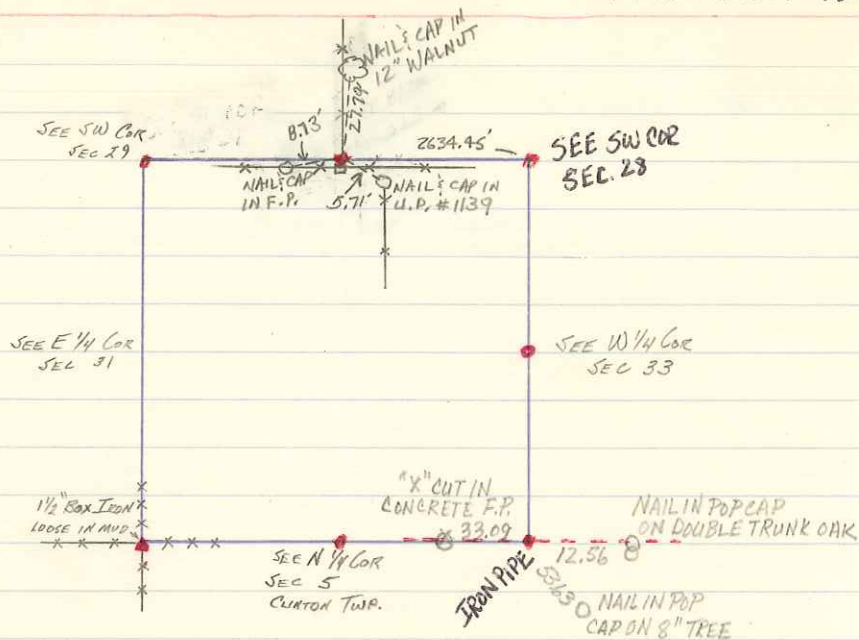 NAIL & CAP IN
12" WALNUT
27.79'
SEE SW COR
SEC 29
8.73'
2634.45'
SEE SW COR
SEC. 28
NAIL & CAP
IN F.P.
5.71'
NAIL & CAP IN
U.P. #1139
SEE E 1/4 COR
SEC 31
SEE W 1/4 COR
SEC 33
1 1/2" BOX IRON
LOOSE IN MUD
"X" CUT IN
CONCRETE F.P.
33.09
NAIL IN POP CAP
ON DOUBLE TRUNK OAK
12.56
SEE N 1/4 COR
SEC 5
CLINTON TWP.
IRON PIPE
NAIL IN POP
CAP ON 8" TREE